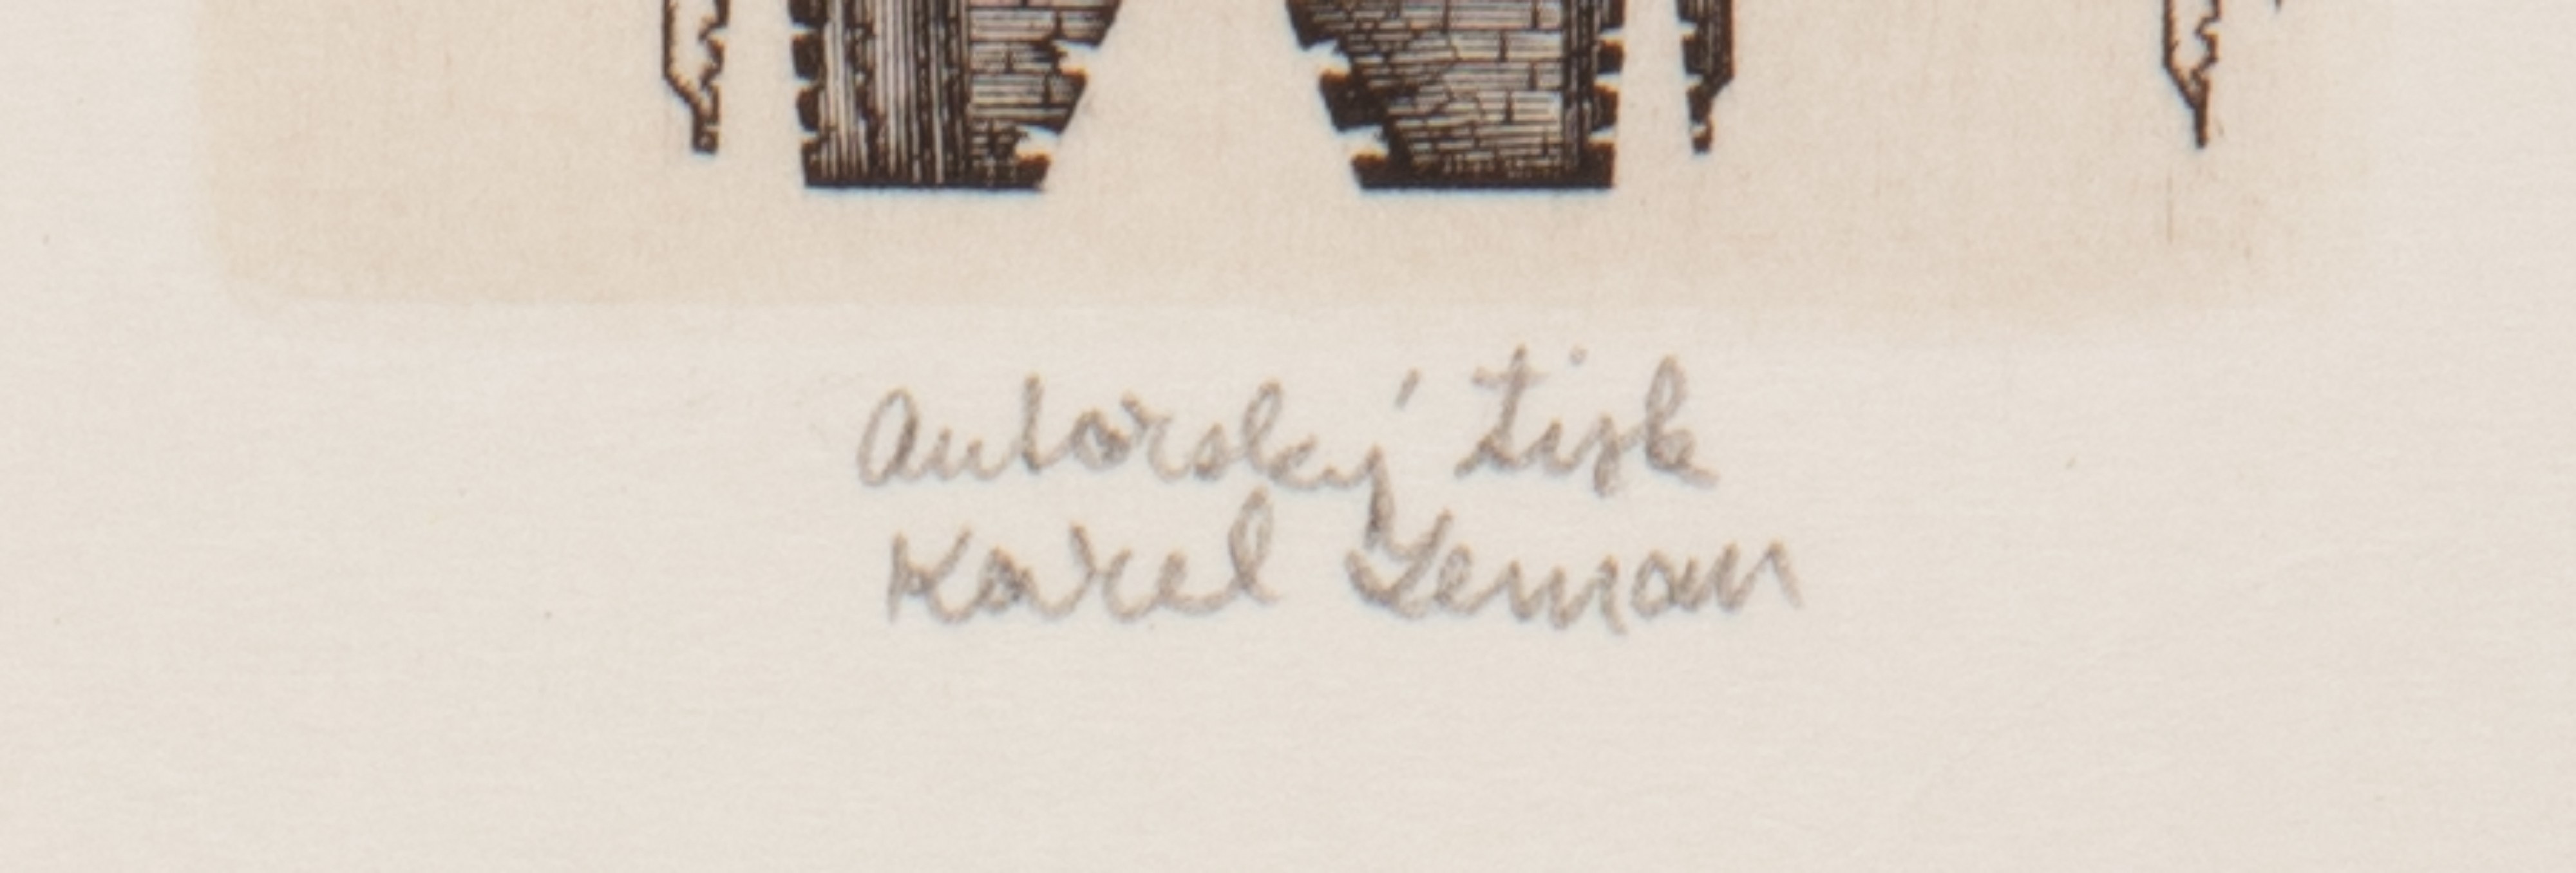 Autorský tisk
Karel Zeman